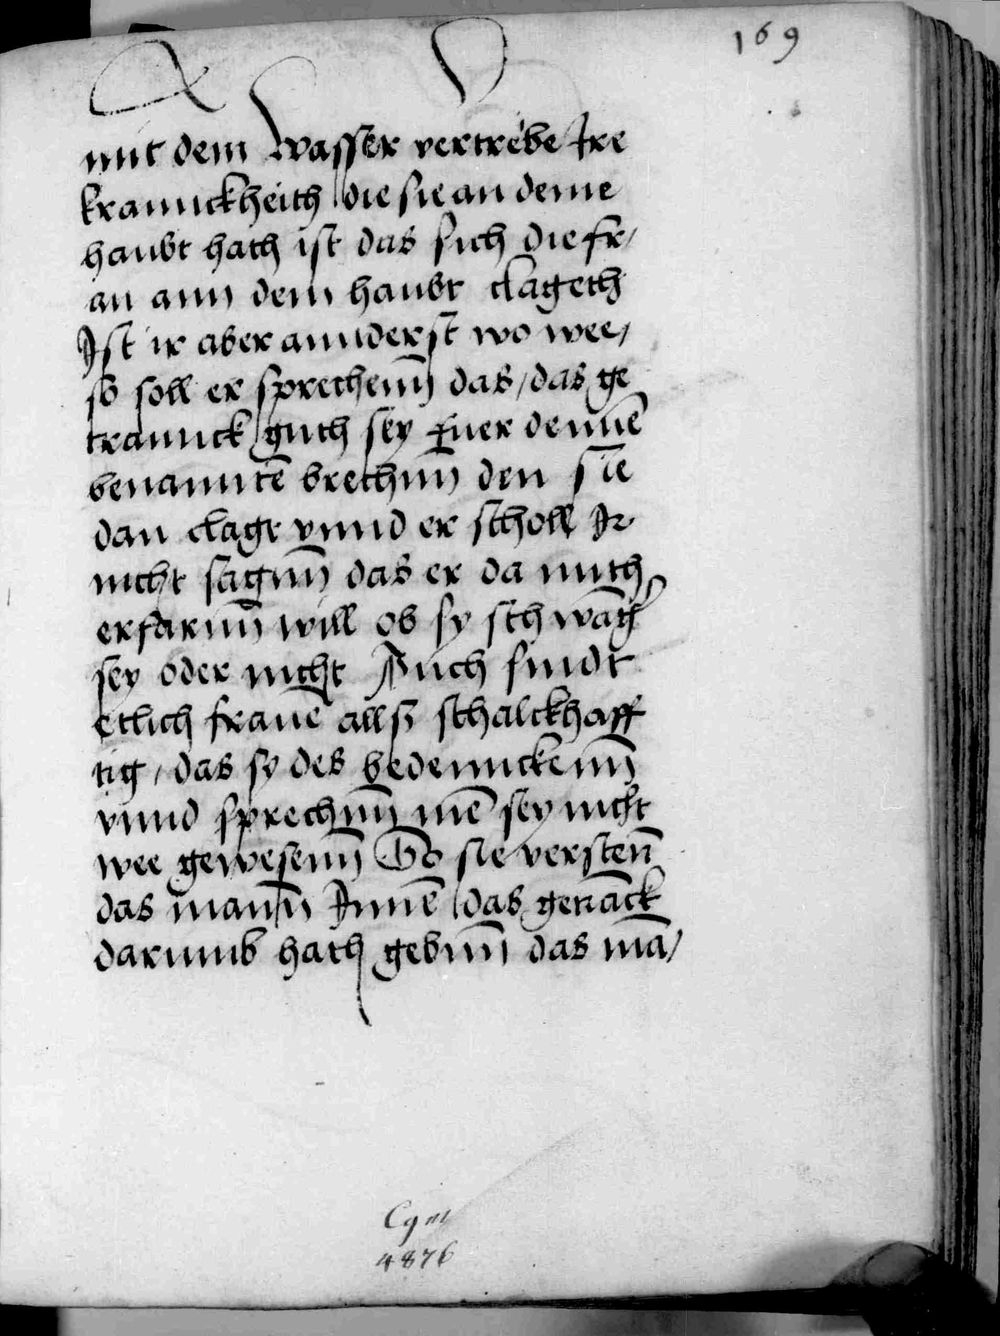 169
mit dem wasser vertrebe Ire
krannckheith die sie an deme
haubt hath ist das sich die fr/
au ann dem haubt clageth
Ist ir aber annderst wo wee/
so soll er sprechenn̄ das / das ge
trannck guth sey fuer dennē
benanntē brechnn̄ den sie
dan clagt vnnd er scholl Ir
nicht sagnn̄ das er da mith
erfarnn̄ will ob sy schwāg̃
sey oder nicht Auch sindt
etlich frauē allsz schalckhaff
tig / das sy des bedennckenn̄
vnnd sprechnn̄ mē sey nicht
wee gewesenn̄ So sie verstenn̄
das mann̄ Innē das getrāck
darumb hath gebnn̄ das mā/
Cgm
4876